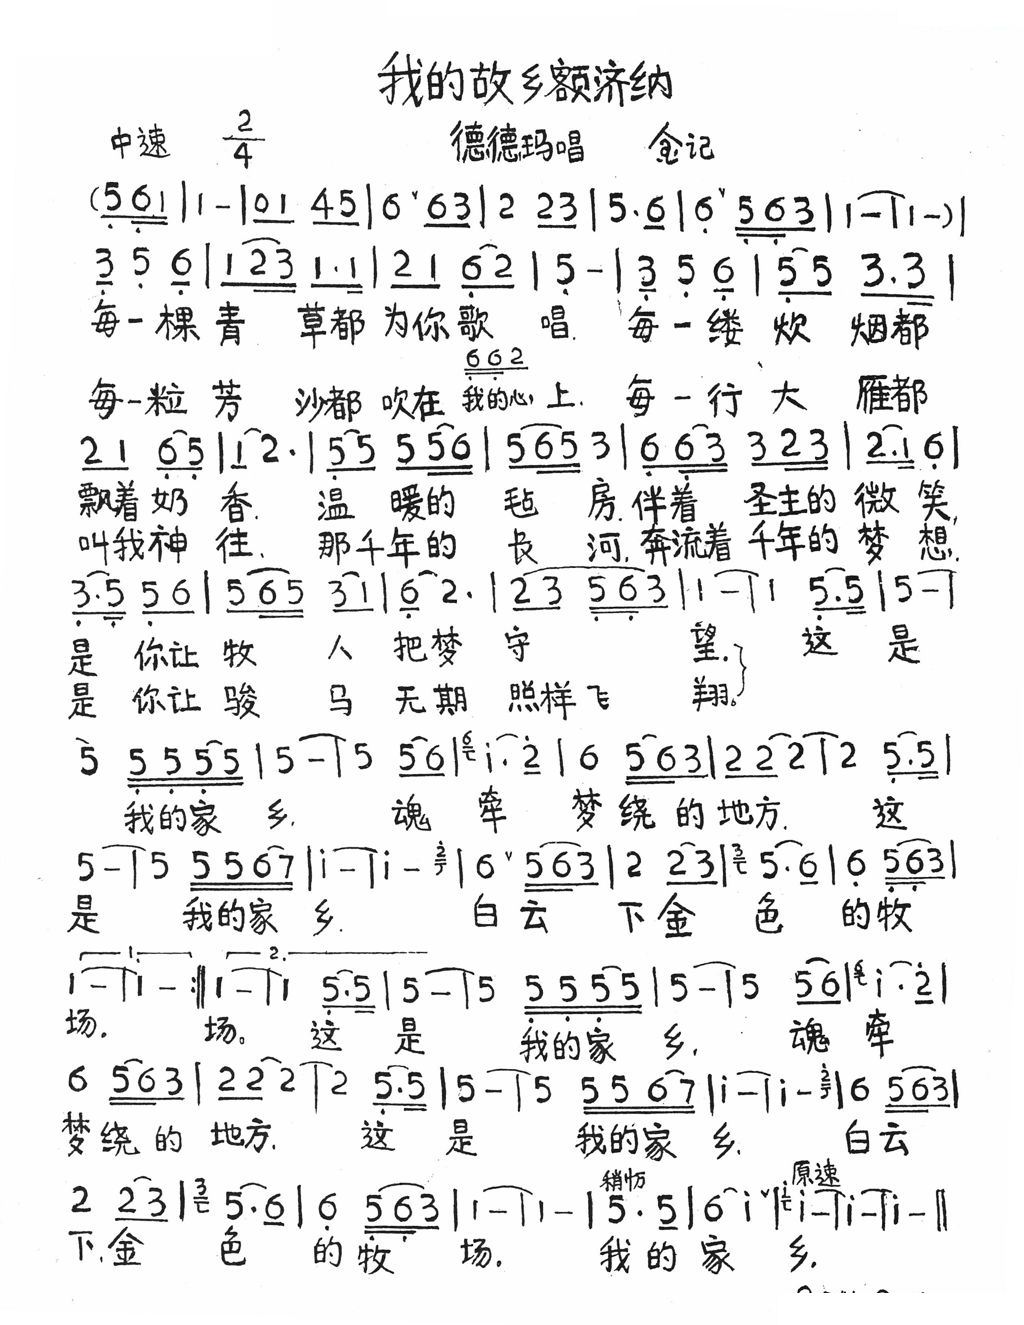 我的故乡额济纳
中速 2/4 德德玛唱 金记
(5 6 1 | 1 - | 0 1 4 5 | 6 ˅ 6 3 | 2 2 3 | 5 · 6 | 6 ˅ 5 6 3 | 1 - | 1 - ) |
3 5 6 | 1 2 3 1 · 1 | 2 1 6 2 | 5 - | 3 5 6 | 5 5 3 . 3 |
每一棵青 草都 为你歌 唱. 每一缕 炊 烟都
6 6 2
每一粒芳 沙都 吹在 我的心 上. 每一行 大 雁都
2 1 6 5 | 1 2 · | 5 5 5 5 6 | 5 6 5 3 | 6 6 3 3 2 3 | 2 . 1 6 |
飘着奶 香. 温 暖的 毡 房. 伴着 圣主的 微 笑,
叫我神 往. 那千年的 长 河, 奔流着 千年的 梦 想.
3 · 5 5 6 | 5 6 5 3 1 | 6 2 . | 2 3 5 6 3 | 1 - | 1 5 . 5 | 5 - |
是 你让 牧 人 把梦 守 望. 这 是
是 你让 骏 马 无期 照样飞 翔。
5 5 5 5 5 | 5 - | 5 5 6 | i · 2 | 6 5 6 3 | 2 2 2 | 2 5 . 5 |
我的家 乡. 魂 牵 梦绕的地方. 这
5 - | 5 5 5 6 7 | i - | i - | 6 ˅ 5 6 3 | 2 2 3 | 5 · 6 | 6 5 6 3 |
是 我的家 乡. 白 云 下金 色 的牧
1. 2.
1 - | 1 - :‖ 1 - | 1 5 . 5 | 5 - | 5 5 5 5 5 | 5 - | 5 5 6 | i · 2 |
场. 场。 这 是 我的家 乡. 魂 牵
6 5 6 3 | 2 2 2 | 2 5 . 5 | 5 - | 5 5 5 6 7 | i - | i - | 6 5 6 3 |
梦绕的 地方. 这 是 我的家 乡. 白云
稍 原速
2 2 3 | 5 · 6 | 6 5 6 3 | 1 - | 1 - | 5 · 5 | 6 i ˅ | i - | i - | i - ‖
下.金 色 的牧 场. 我 的 家 乡.